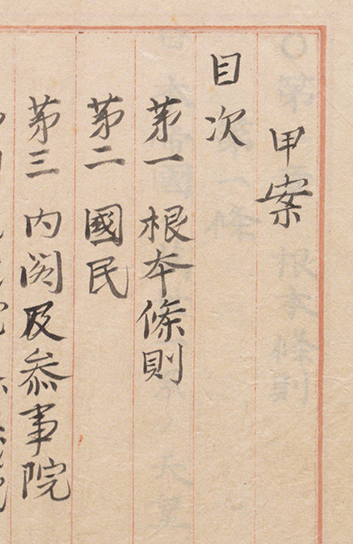 甲案
目次
第一 根本條則
第二 國民
第三 内閣及参事院